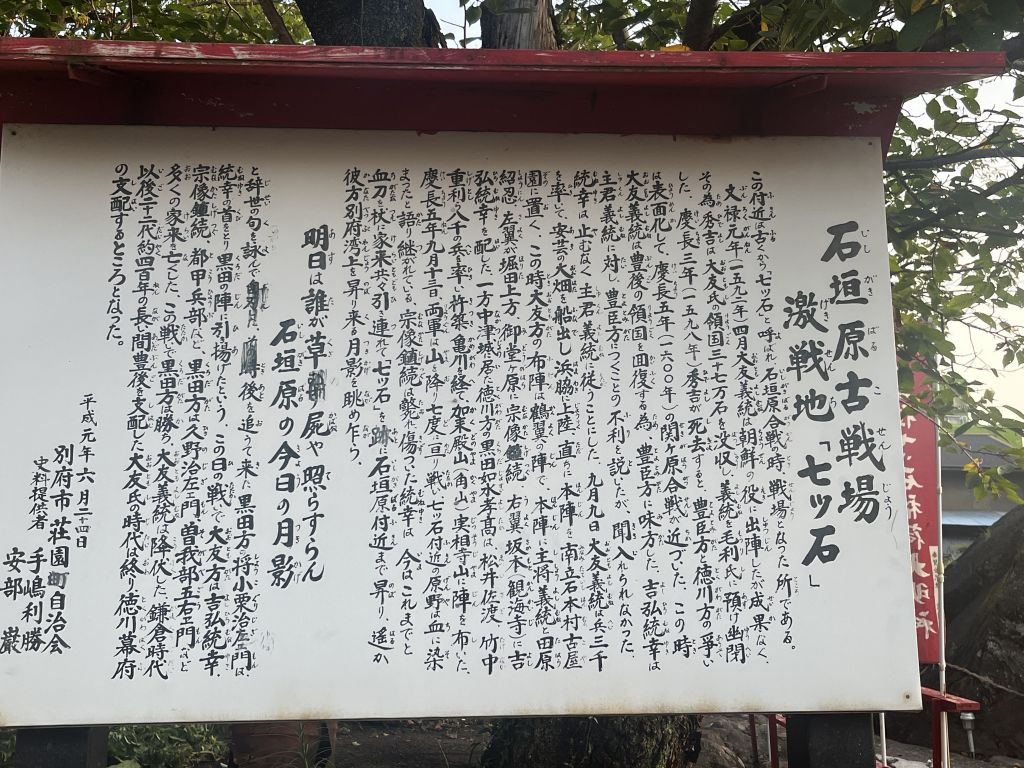 石垣原古戦場
激戦地「七ッ石」
この付近は古くから「七ッ石」と呼ばれ石垣原合戦の時、戦場となった所である。
文禄元年(一五九二年)四月大友義統は朝鮮の役に出陣したが成果なく、
その為秀吉は大友氏の領国三十七万石を没収し義統を毛利氏に預け幽閉
した。慶長三年(一五九八年)秀吉が死去すると豊臣方、徳川方の争い
は表面化して、慶長五年(一六〇〇年)の関ヶ原合戦が近づいた。この時
大友義統は豊後の領国を回復する為、豊臣方に味方した。吉弘統幸は
主君義統に対し、豊臣方につくことの不利を説いたが、聞入れられなかった。
統幸は止むなく主君義統に従うことにした。九月九日大友義統は兵三千
を率いて、安芸の大畑を船出し浜脇に上陸、直ちに本陣を南立石本村古屋
園に置く、この時大友方の布陣は鶴翼の陣で、本陣に主将義統と田原
紹忍、左翼が堀田上方、御堂ヶ原に宗像鎮統、右翼坂本観海寺に吉
弘統幸を配した。一方中津城に居た徳川方の黒田如水孝高は、松井佐渡、竹中
重利ら八千の兵を率い杵築、亀川を経て、加来殿山(角山)実相寺山に陣を布いた。
慶長五年九月十三日、両軍は山を降り七度に亘り戦い七ッ石付近の原野は血に染
まったと語り継がれている。宗像鎮統は斃れ傷ついた統幸は、今はこれまでと
血刀を杖に家来共々引き連れて「七ッ石」を跡に石垣原付近まで昇り、遥か
彼方別府湾上を昇り来る月影を眺め乍ら、
明日は誰が草 屍や照らすらん
石垣原の今日の月影
と辞世の句を詠んで 後を追うて来た黒田方の将小栗治左ェ門は、
統幸の首をとり黒田の陣に引き揚げたという。この日の戦いで大友方は吉弘統幸、
宗像鎮統、都甲兵部ら、黒田方は久野治左ェ門、曽我部五右ェ門など
多くの家来を亡くした。この戦いで黒田方は勝ち、大友義統は降伏した。鎌倉時代
以後二十二代約四百年の長い間豊後を支配した大友氏の時代は終り徳川幕府
の支配するところとなった。
平成元年六月二十四日
別府市荘園町自治会
史料提供者 手嶋利勝
安部 巌